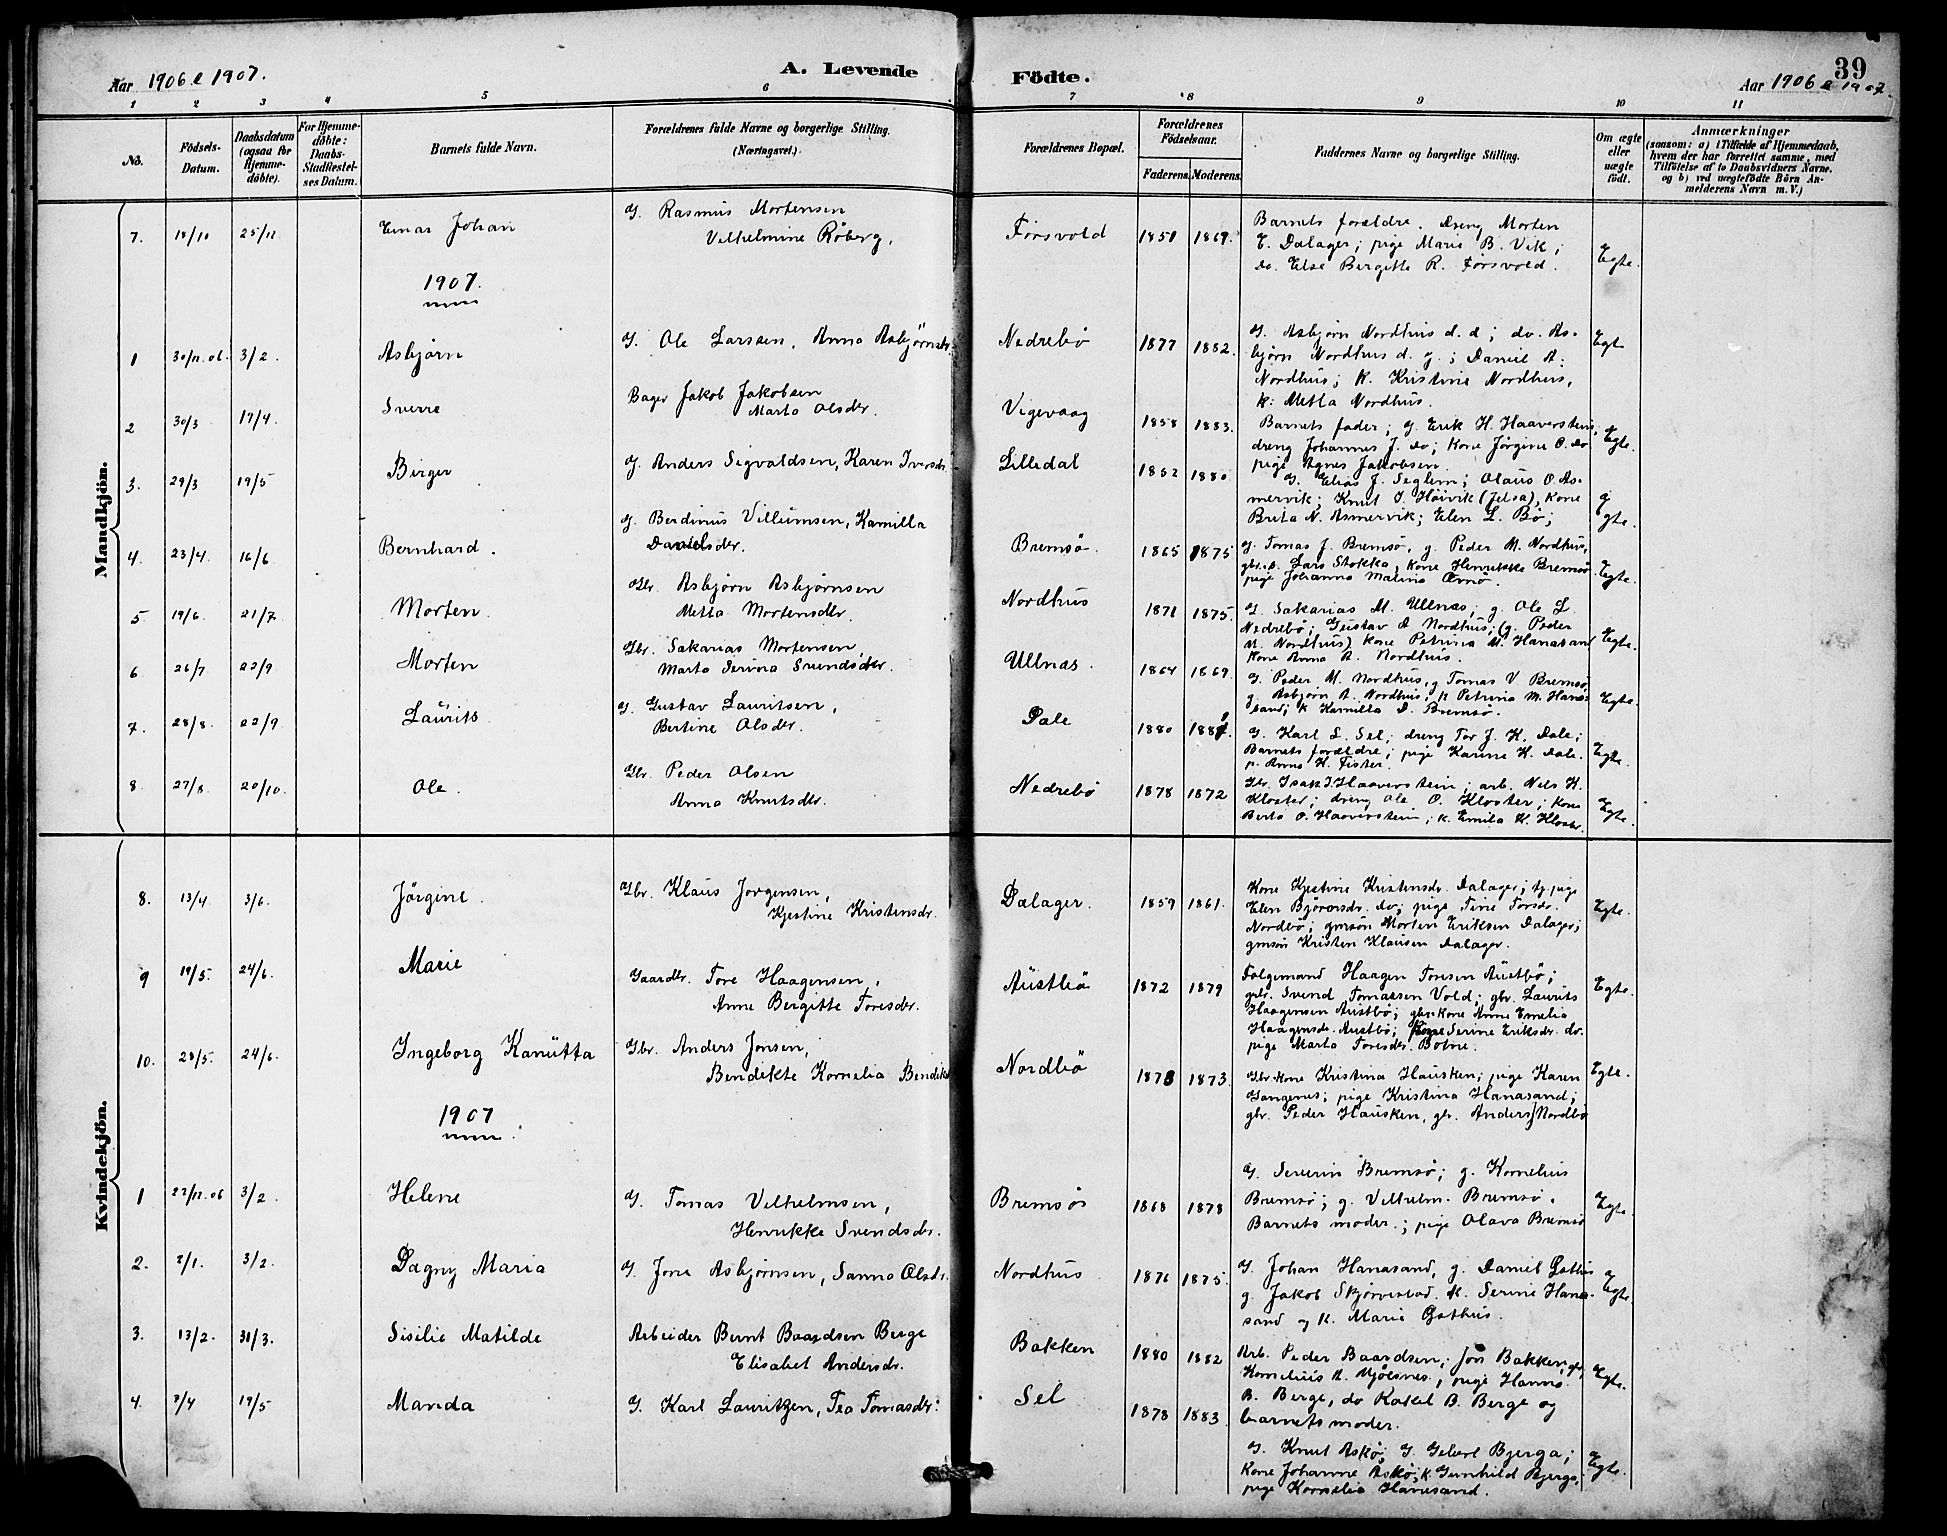 Aar 1906 & 1907.
A. Levende
Födte.
39
Aar 1906 & 1907.
1 2 3 4 5 6 7 8 9 10 11
No.
Födsels-
Datum.
Daabsdatum
(ogsaa for
Hjemme-
döbte).
For Hjemme-
döbte:
Daabs-
Stadfestel-
ses Datum.
Barnets fulde Navn.
Forældrenes fulde Navne og borgerlige Stilling.
(Næringsvei.)
Forældrenes Bopæl.
Forældrenes
Födselsaar.
Faderens. Moderens.
Faddernes Navne og borgerlige Stilling.
Om ægte
eller
uægte
født.
Anmærkninger
(saasom: a) i Tilfælde af Hjemmedaab,
hvem der har forrettet samme, med
Tilföielse af to Daabsvidners Navne.
og b) ved uægtefödte Börn An-
melderens Navn m. V.)
Mandkjön.
7. 18/10 25/11 Einar Johan
G. Rasmus Mortensen
Vilhelmine Röberg.
Forsvold 1851 1869.
Barnets forældre. Dreng Morten
E. Dalager; pige Marie B. Vik;
do. Else Bergitte R. Forsvold.
Egte.
1907.
1 30/11.06. 3/2. Asbjørn
G. Ole Larssen, Anna Asbjörnsdr.
Nedrebö 1877 1882.
G. Asbjørn Nordhus d. æ; do. As-
bjørn Nordhus d. y.; Daniel A.
Nordhus; K. Kristine Nordhus,
k: Metta Nordhus.
Egte
2 30/3 17/4. Sverre
Bager Jakob Jakobsen
Marta Olsdr.
Vigevaag 1858 1883.
Barnets fader; g. Erik H. Haaverstein,
dreng Johannes J. do; Kone Jørgine O. do
pige Agnes Jakobsen.
Egte.
3. 29/3 19/5 Birger
G. Anders Sigvaldsen, Karen Iversdr.
Lilledal 1882 1880
G. Elias J. Seglem; Olaus O. As-
mervik; Knut I. Høivik (Jelsa), Kone
Brita N. Asmervik; Elen L. Bø;
Egte.
4. 23/4. 16/6 Bernhard.
G. Berdinus Villumsen, Kamilla
Danielsdr.
Bremsö. 1865 1875
G. Tomas J. Bremsø, g. Peder M. Nordhus,
gbr. s. Lars Stokka, Kone Henrikke Bremsø
pige Johanna Malina
Egte.
5 19/6. 21/7. Morten.
Gbr. Asbjørn Asbjørnsen
Metta Mortensdtr.
Nordhus 1871 1875.
G. Sakarias M. Ullnæs; g. Ole L.
Nedrebö; Gustav A Nordhus; (g. Peder
M. Nordhus) kone Petrina M. Hanasand
Kone Anna A. Nordhus.
Egte.
6 26/7 22/9. Morten
Gbr. Sakarias Mortensen,
Marta Serina Svendsdtr.
Ullnas. 1864 1869
G. Peder M. Nordhus, g Tomas V Bremsø,
g. Asbjørn A. Nordhus; k Petrina M. Hana-
sand; k Kamilla D. Bremsø.
Egte.
7. 28/8. 22/9. Laurits
G. Gustav Lauritsen,
Bertine Olsdr.
Dale 1880
G. Karl L. Sel; dreng Tor J. K. Dale;
Barnets forældre; pige Karine K. Dale.
p. Anna K. Fister.
Egte.
8. 27/8. 20/10. Ole.
Gbr. Peder Olsen
Anna Knutsdtr.
Nedrebö 1878 1872
Gbr. Isak I. Haaverstein; arb. Nels K.
Kloster; dreng Ole O. Kloster; kone
Berta O. Haaverstein; k. Emila K. Kloster.
Egte.
Kvindekjön.
8. 13/4 3/6. Jörgine.
Gbr. Klaus Jorgensen,
Kjestine Kristensdr.
Dalager. 1859 1861.
Kone Kjestine Kristensdr. Dalager; tj. pige
Elen do; pige Tine Torsdr.
Nordbö; gmsøn Morten Eriksen Dalager;
gmsøn Kristen Klausen Dalager.
Egte.
9 19/5. 24/6. Marie
Gaardbr. Tore Haagensen,
Anne Bergitte Toresdr.
Austbö 1872 1879
Folgemand Haagen Toresen Austbö;
gbr. Svend Tomassen Vold; gbr. Laurits
Haagensen Austbö; gbr. kone Anne Emelia
Haagensdr. Austbö; Kone Serine Eriksdr. do.
pige Marta Toresdr. Botne.
Egte.
10. 28/5. 24/6. Ingeborg Kanutta
Gbr. Anders Jonsen,
Bendikte Kornelia Bendiks
Nordbö 1873 1873.
Gbr. kone Kristina Hausken; pige Karen
Gangenes; pige Kristina Hanasand;
gbr. Peder Hausken, gbr. Anders Nordbö
Egte.
1907
1 22/11.06 3/2. Helene
G. Tomas Vilhelmsen,
Henrikke Svendsdr.
Bremsö 1868 1878
G. Severin Bremsö; g. Kornelius
Bremsö; g. Vilhelm. Bremsö.
Barnets moder.; pige Olava Bremsö
Egte.
2. 2/1. 3/2. Dagny Maria
G. Jone Asbjørnsen, Sanna Olsdr.
Nordhus 1876 1875.
G. Johan Hanasand, g. Daniel Østhus
g. Jakob Skjørvestad. K. Serine Hana-
sand og K. Marie Østhus.
Egte.
3. 13/2. 31/3. Sisilie Matilde
Arbeider Bernt Baardsen Berge
Elisabet Andersdr.
Bakken 1880 1882
Arb. Peder Baardsen; Jon Bakken, gbr.
Kornelius A. Mjølsnes; pige Hanna
B. Berge, do Rakel B. Berge og
barnets moder.
Egte.
4. 7/4 19/5 Manda
G. Karl Lauritzen, Tea Tomasdr.
Sel 1878 1883
G. Knut Askø; G. Gebert Bjerga;
Kone Johanne Askø; k. Gunhild Bjerga,
pige Kornelia Hanasand.
Egte.